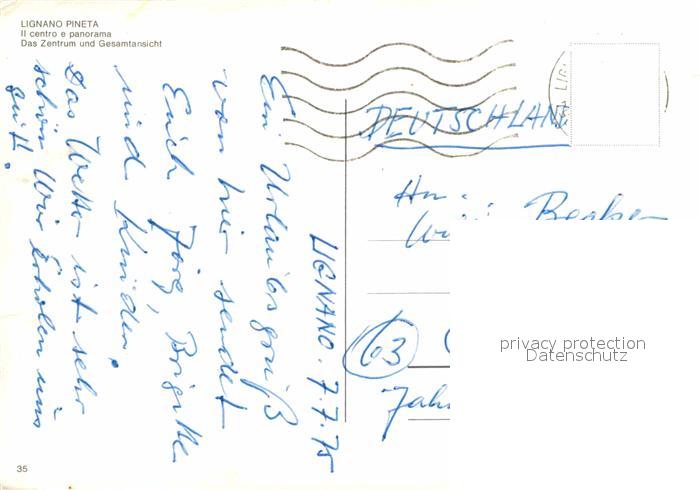 LIGNANO PINETA
Il centro e panorama
Das Zentrum und Gesamtansicht
LIGNANO. 7.7.75
Ein Urlaubsgruß
von hier sendet
Euch Jörg, Brigitte
und Kinder.
Das Wetter ist sehr
schön. Wir erholen uns
gut.
DEUTSCHLAND
63
privacy protection
Datenschutz
35